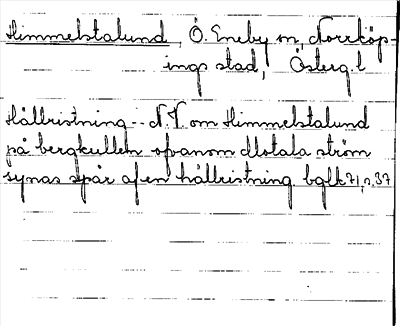 Himmelstalund, Ö. Eneby sn, Norrköp-
ings stad, Östergl
Hällristning -- N.V. om Himmelstalund
på bergkullen ofvanom Motala ström
synas spår af en hällristning. bglk 71, s. 37